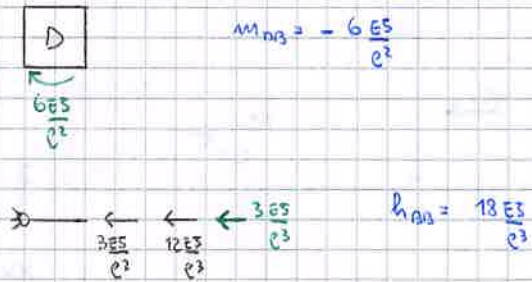 D
m_DB = - 6 EJ/ℓ²
6EJ/ℓ²
3EJ/ℓ³ 12EJ/ℓ³ 3EJ/ℓ³
h_BB = 18 EJ/ℓ³